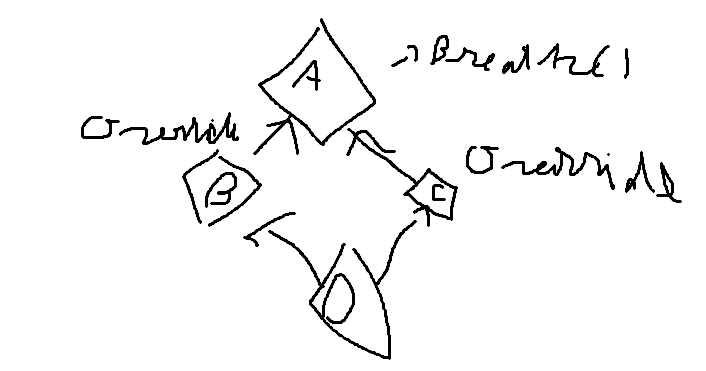 A
Breathe()
Override
Override
B
C
D